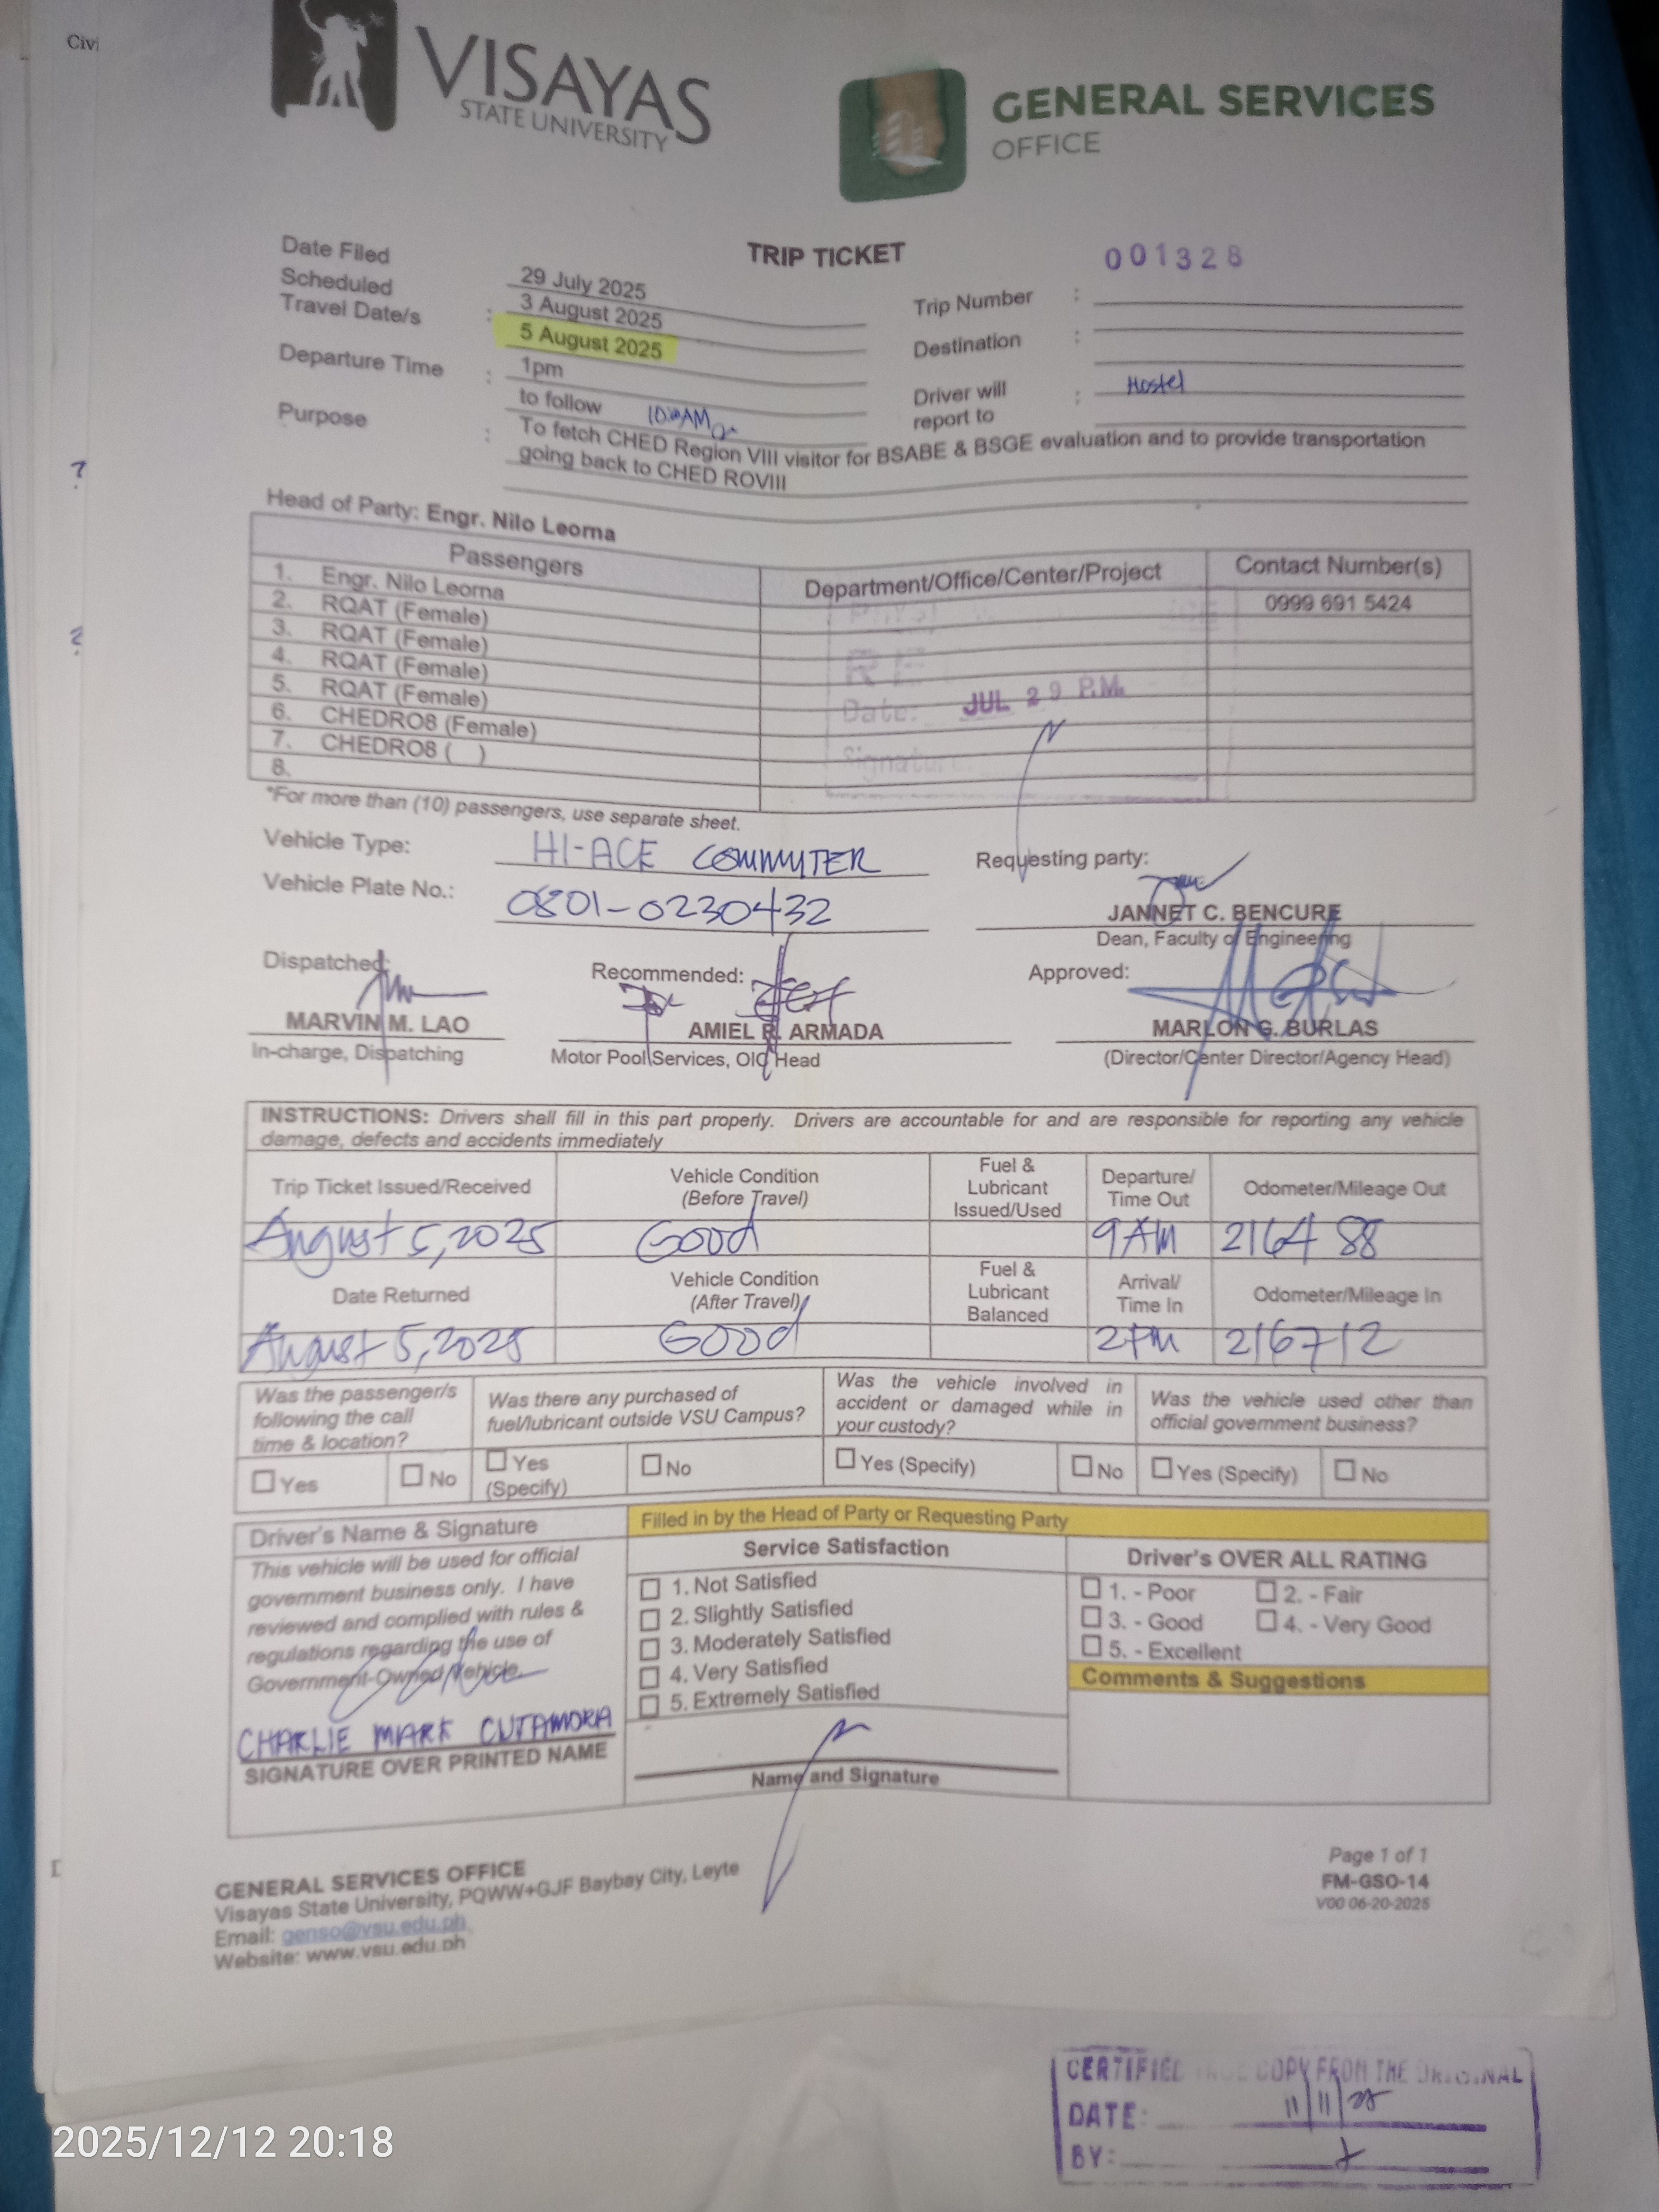 Civi
VISAYAS
STATE UNIVERSITY
GENERAL SERVICES
OFFICE
TRIP TICKET
001328
Date Filed
Scheduled
Travel Date/s :
29 July 2025
3 August 2025
5 August 2025
Departure Time :
1pm
to follow 10:00AM
Trip Number :
Destination :
Driver will
report to : Hostel
Purpose :
To fetch CHED Region VIII visitor for BSABE & BSGE evaluation and to provide transportation
going back to CHED ROVIII
Head of Party: Engr. Nilo Leorna
Passengers Department/Office/Center/Project Contact Number(s)
1. Engr. Nilo Leorna 0999 691 5424
2. RQAT (Female)
3. RQAT (Female)
4. RQAT (Female)
5. RQAT (Female)
6. CHEDRO8 (Female)
7. CHEDRO8 ( )
8.
Date: JUL 29 P.M.
Signature:
*For more than (10) passengers, use separate sheet.
Vehicle Type: HI-ACE COMMUTER
Vehicle Plate No.: 0801-0230432
Requesting party:
JANNET C. BENCURE
Dean, Faculty of Engineering
Dispatched: Recommended: Approved:
MARVIN M. LAO AMIEL R. ARMADA MARLON G. BURLAS
In-charge, Dispatching Motor Pool Services, OIC Head (Director/Center Director/Agency Head)
INSTRUCTIONS: Drivers shall fill in this part properly. Drivers are accountable for and are responsible for reporting any vehicle
damage, defects and accidents immediately
Trip Ticket Issued/Received
Vehicle Condition
(Before Travel)
Fuel &
Lubricant
Issued/Used
Departure/
Time Out
Odometer/Mileage Out
August 5, 2025 Good 9AM 216488
Date Returned
Vehicle Condition
(After Travel)
Fuel &
Lubricant
Balanced
Arrival/
Time In
Odometer/Mileage In
August 5, 2025 Good 2PM 216712
Was the passenger/s
following the call
time & location?
Was there any purchased of
fuel/lubricant outside VSU Campus?
Was the vehicle involved in
accident or damaged while in
your custody?
Was the vehicle used other than
official government business?
Yes No Yes
(Specify) No Yes (Specify) No Yes (Specify) No
Driver's Name & Signature
This vehicle will be used for official
government business only. I have
reviewed and complied with rules &
regulations regarding the use of
Government-Owned Vehicle.
CHARLIE MARK CUTAMORA
SIGNATURE OVER PRINTED NAME
Filled in by the Head of Party or Requesting Party
Service Satisfaction
1. Not Satisfied
2. Slightly Satisfied
3. Moderately Satisfied
4. Very Satisfied
5. Extremely Satisfied
Name and Signature
Driver's OVER ALL RATING
1. - Poor 2. - Fair
3. - Good 4. - Very Good
5. - Excellent
Comments & Suggestions
GENERAL SERVICES OFFICE
Visayas State University, PQWW+GJF Baybay City, Leyte
Email: genso@vsu.edu.ph
Website: www.vsu.edu.ph
Page 1 of 1
FM-GSO-14
V00 06-20-2025
CERTIFIED TRUE COPY FROM THE ORIGINAL
DATE: 11/11/25
BY:
2025/12/12 20:18